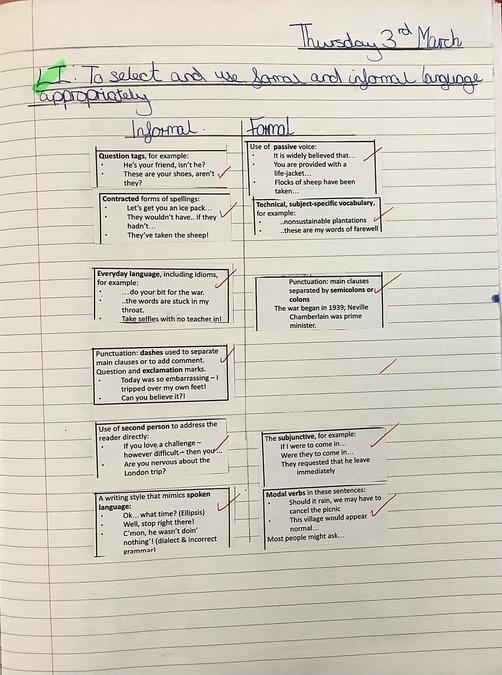 Thursday 3rd March
LI: To select and use formal and informal language
appropriately
Informal.
Question tags, for example:
• He's your friend, isn't he?
• These are your shoes, aren't
they?
Contracted forms of spellings:
• Let's get you an ice pack...
• They wouldn't have.. if they
hadn't...
• They've taken the sheep!
Everyday language, including idioms,
for example:
• ...do your bit for the war.
• ..the words are stuck in my
throat.
• Take selfies with no teacher in!
Punctuation: dashes used to separate
main clauses or to add comment.
Question and exclamation marks.
• Today was so embarrassing – I
tripped over my own feet!
• Can you believe it?!
Use of second person to address the
reader directly:
• If you love a challenge –
however difficult – then you...
• Are you nervous about the
London trip?
A writing style that mimics spoken
language:
• Ok... what time? (Ellipsis)
• Well, stop right there!
• C'mon, he wasn't doin'
nothing'! (dialect & incorrect
grammar)
Formal
Use of passive voice:
• It is widely believed that...
• You are provided with a
life-jacket...
• Flocks of sheep have been
taken...
Technical, subject-specific vocabulary,
for example:
• ..nonsustainable plantations
• ..these are my words of farewell
Punctuation: main clauses
separated by semicolons or
colons
The war began in 1939; Neville
Chamberlain was prime
minister.
The subjunctive, for example:
If I were to come in...
Were they to come in...
They requested that he leave
immediately
Modal verbs in these sentences:
• Should it rain, we may have to
cancel the picnic
• This village would appear
normal...
Most people might ask...